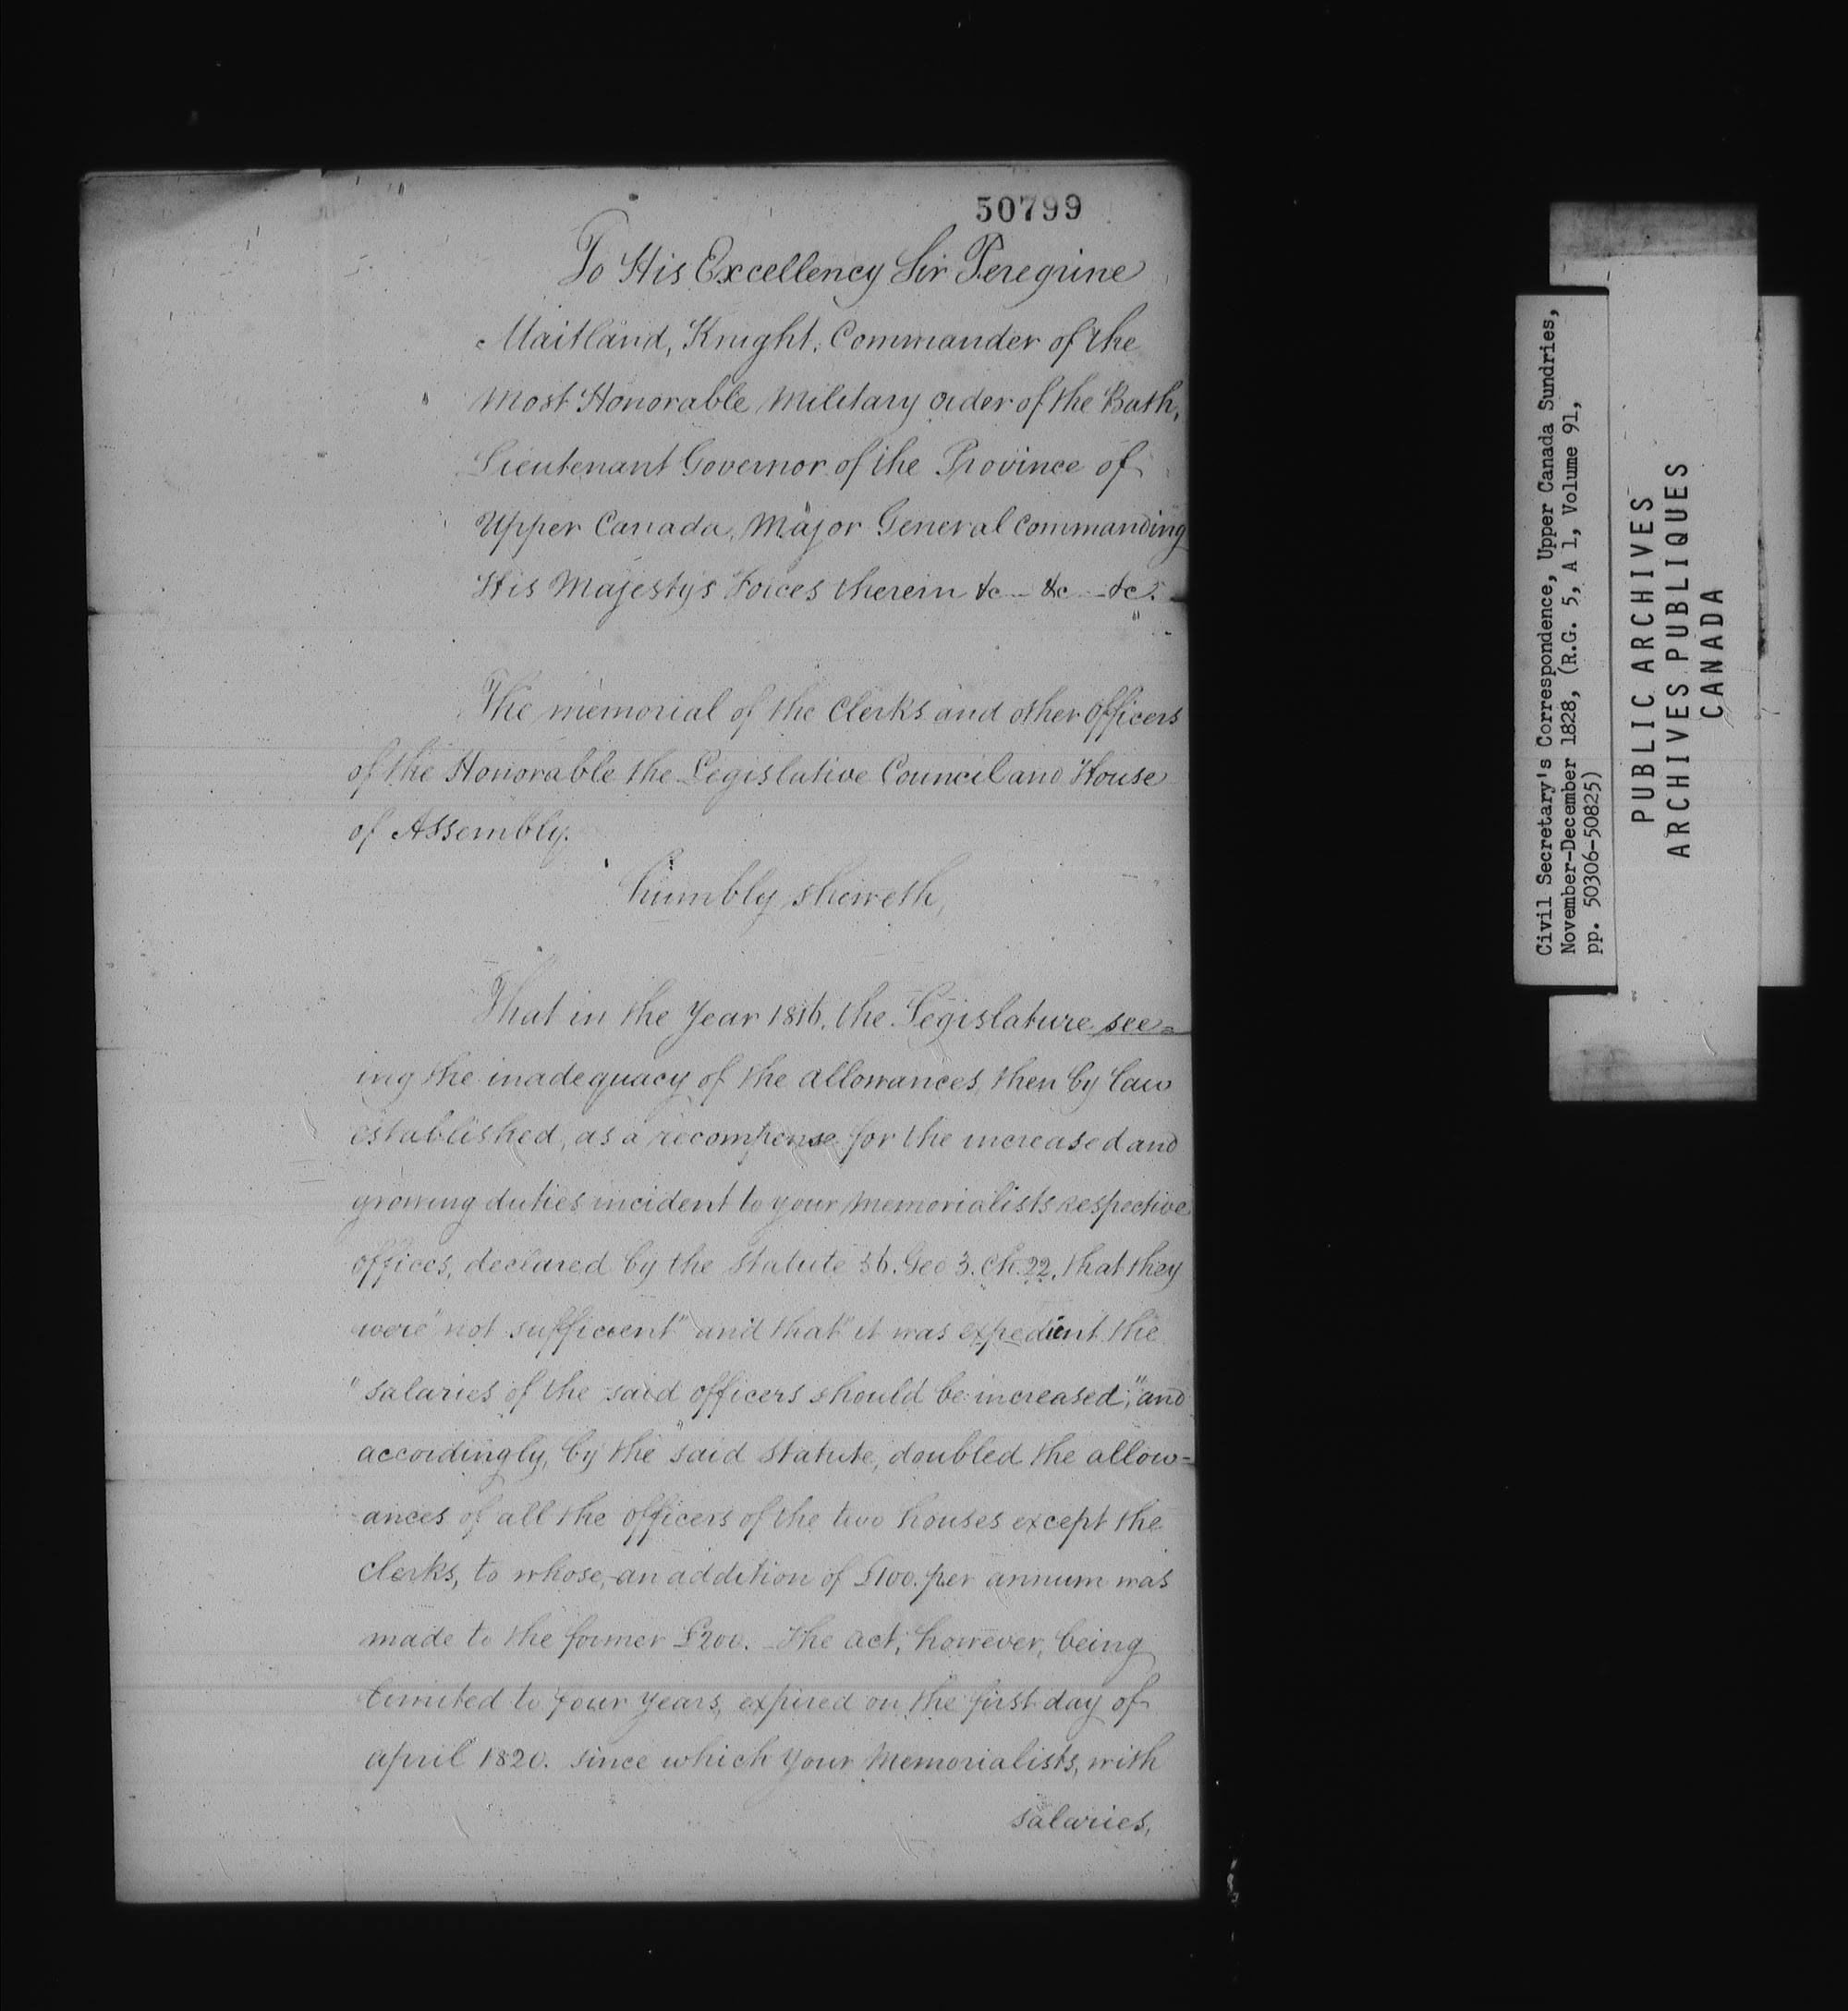 50799
To His Excellency Sir Peregrine
Maitland, Knight, Commander of the
Most Honorable Military order of the Bath,
Lieutenant Governor of the Province of
Upper Canada, Major General commanding
His Majesty's Forces therein &c - &c - &c.
The memorial of the Clerks and other Officers
of the Honorable the Legislative Council and House
of Assembly.
humbly sheweth,
That in the Year 1816, the Legislature see=
ing the inadequacy of the allowances, then by law
established, as a recompense for the increased and
growing duties incident to your memorialists respective
offices, declared by the statute 56. Geo 3. Ch. 22, that they
were "not sufficient" and that "it was expedient the
"salaries of the said officers should be increased," and
accordingly, by the said statute, doubled the allow=
ances of all the officers of the two houses except the
Clerks, to whose, an addition of £100. per annum was
made to the former £200. - The act, however, being
limited to four years, expired on the first day of
april 1820. since which your Memorialists, with
salaries,
Civil Secretary's Correspondence, Upper Canada Sundries,
November-December 1828, (R.G. 5, A 1, Volume 91,
pp. 50306-50825)
PUBLIC ARCHIVES
ARCHIVES PUBLIQUES
CANADA